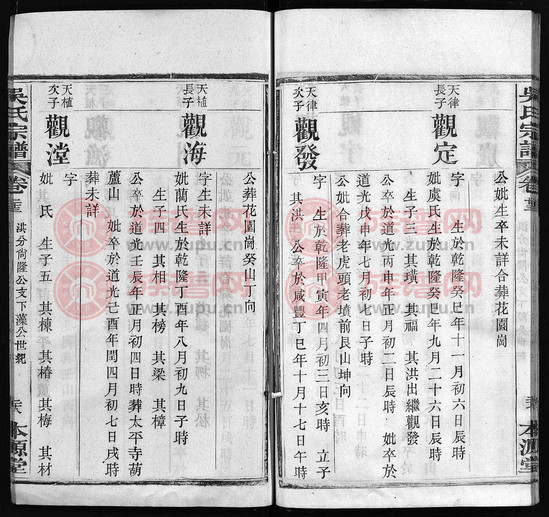 吳氏宗譜
本源堂
公妣生卒未詳合葬花園崗
天律長子
觀定
字 生於乾隆癸巳年十一月初六日辰時
妣虞氏生於乾隆癸巳年九月二十六日辰時
生子三 其璜 其福 其洪出繼觀發
公卒於道光丙申年正月初二日辰時 妣卒於
道光戊申年七月初三日子時
公妣合葬老虎頭老墳前艮山坤向
天律次子
觀發
字 生於乾隆甲寅年四月初三日亥時 立子
其洪 公卒於咸豐丁巳年十月十七日午時
公葬花園崗癸山丁向
天植長子
觀海
字生未詳
妣藺氏生於乾隆丁酉年八月初九日子時
生子四 其相 其榜 其梁 其樟
公卒於道光壬辰年四月初七日子時葬太平寺葫
蘆山 妣卒於道光己酉年閏四月初七日戌時
葬未詳
天植次子
觀瀅
字
妣 氏 生子五 其棟 其椿 其梅 其材
吳氏宗譜
洪分尙隆公支下藻公世紀
本源堂
華南書網
www.zupu.cn